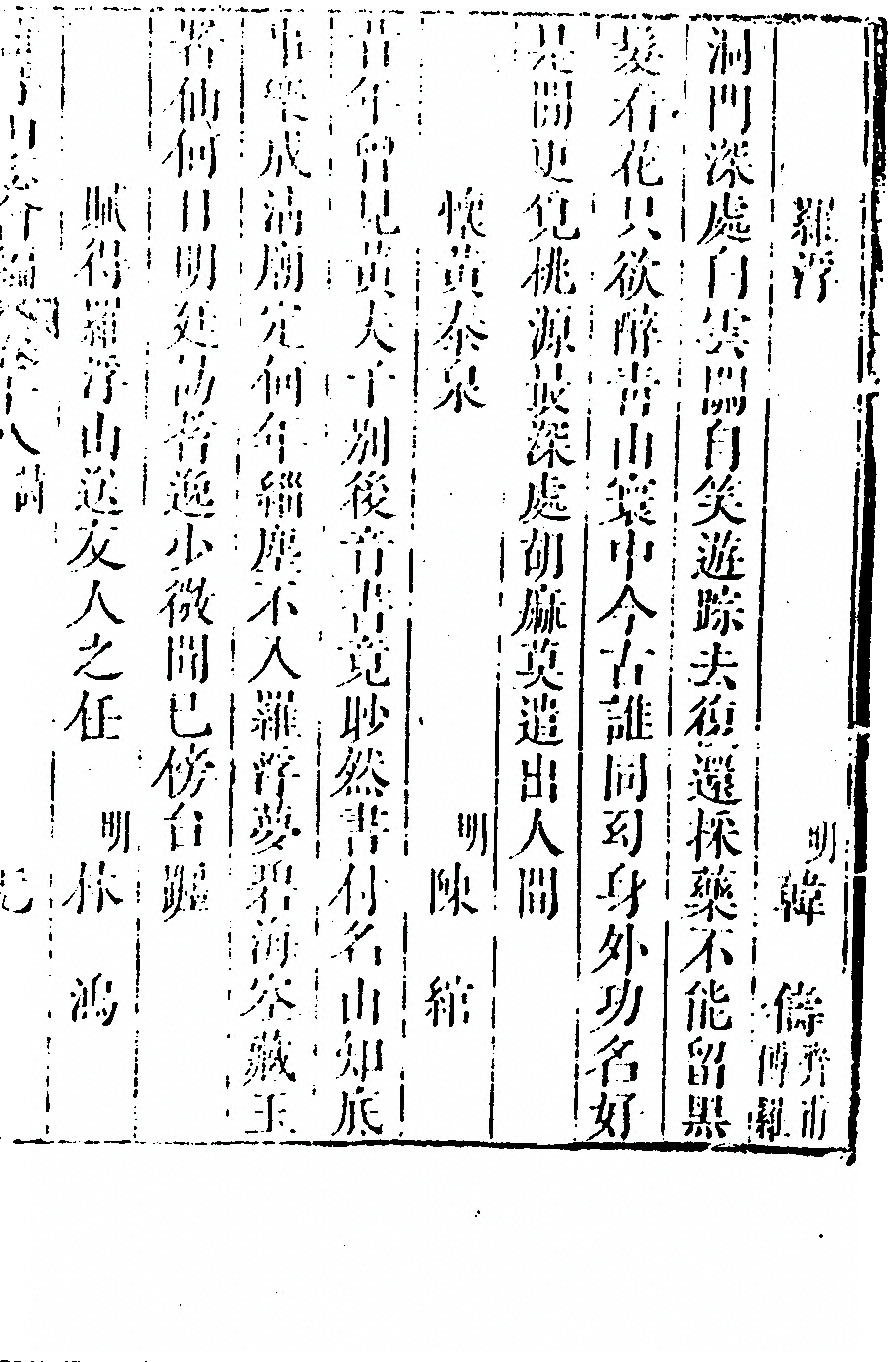 羅浮 明韓 傳
洞門深處白雲關自笑遊踪去復還採藥不能留黑
髮看花只欲醉青山寰中今古誰同幻身外功名好
是閒更覓桃源最深處胡麻莫遣出人間
懷黃泰泉 明陳 綰
昔年曾見黃夫子別後音書竟眇然書付名山知底
事樂成清廟定何年緇塵不入羅浮夢碧海空藏玉
署仙何日明廷訪耆逸少微聞已傍台躔
賦得羅浮山送友人之任 明林 鴻